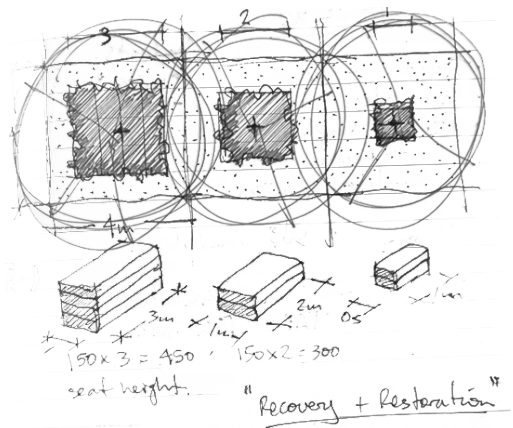 3 2 1
4m
3m 1m 2m 0s 1m
150 x 3 = 450 150 x 2 = 300
seat height.
"Recovery + Restoration"